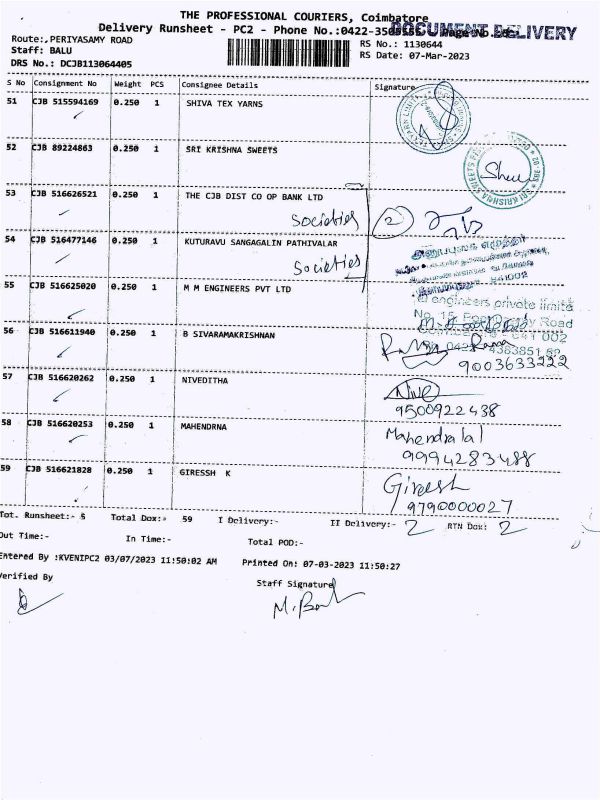 THE PROFESSIONAL COURIERS, Coimbatore
Delivery Runsheet - PC2 - Phone No.:0422-
DOCUMENT DELIVERY
Route:,PERIYASAMY ROAD
RS No.: 1130644
Staff: BALU
RS Date: 07-Mar-2023
DRS No.: DCJB113064405
S No Consignment No Weight PCS Consignee Details Signature
51 CJB 515594169 0.250 1 SHIVA TEX YARNS
52 CJB 89224863 0.250 1 SRI KRISHNA SWEETS
53 CJB 516626521 0.250 1 THE CJB DIST CO OP BANK LTD
Societies 2
54 CJB 516477146 0.250 1 KUTURAVU SANGAGALIN PATHIVALAR
Societies
55 CJB 516625020 0.250 1 M M ENGINEERS PVT LTD
engineers private limite
56 CJB 516611940 0.250 1 B SIVARAMAKRISHNAN
9003633222
57 CJB 516620262 0.250 1 NIVEDITHA
9500922438
58 CJB 516620253 0.250 1 MAHENDRNA
Mahendralal
9994283488
59 CJB 516621828 0.250 1 GIRESSH K
Giressh
9790000027
Tot. Runsheet:- 5 Total Dox:- 59 I Delivery:- II Delivery:- 2 RTN Dox: 2
Out Time:- In Time:- Total POD:-
Entered By :KVENIPC2 03/07/2023 11:50:02 AM Printed On: 07-03-2023 11:50:27
Verified By Staff Signature